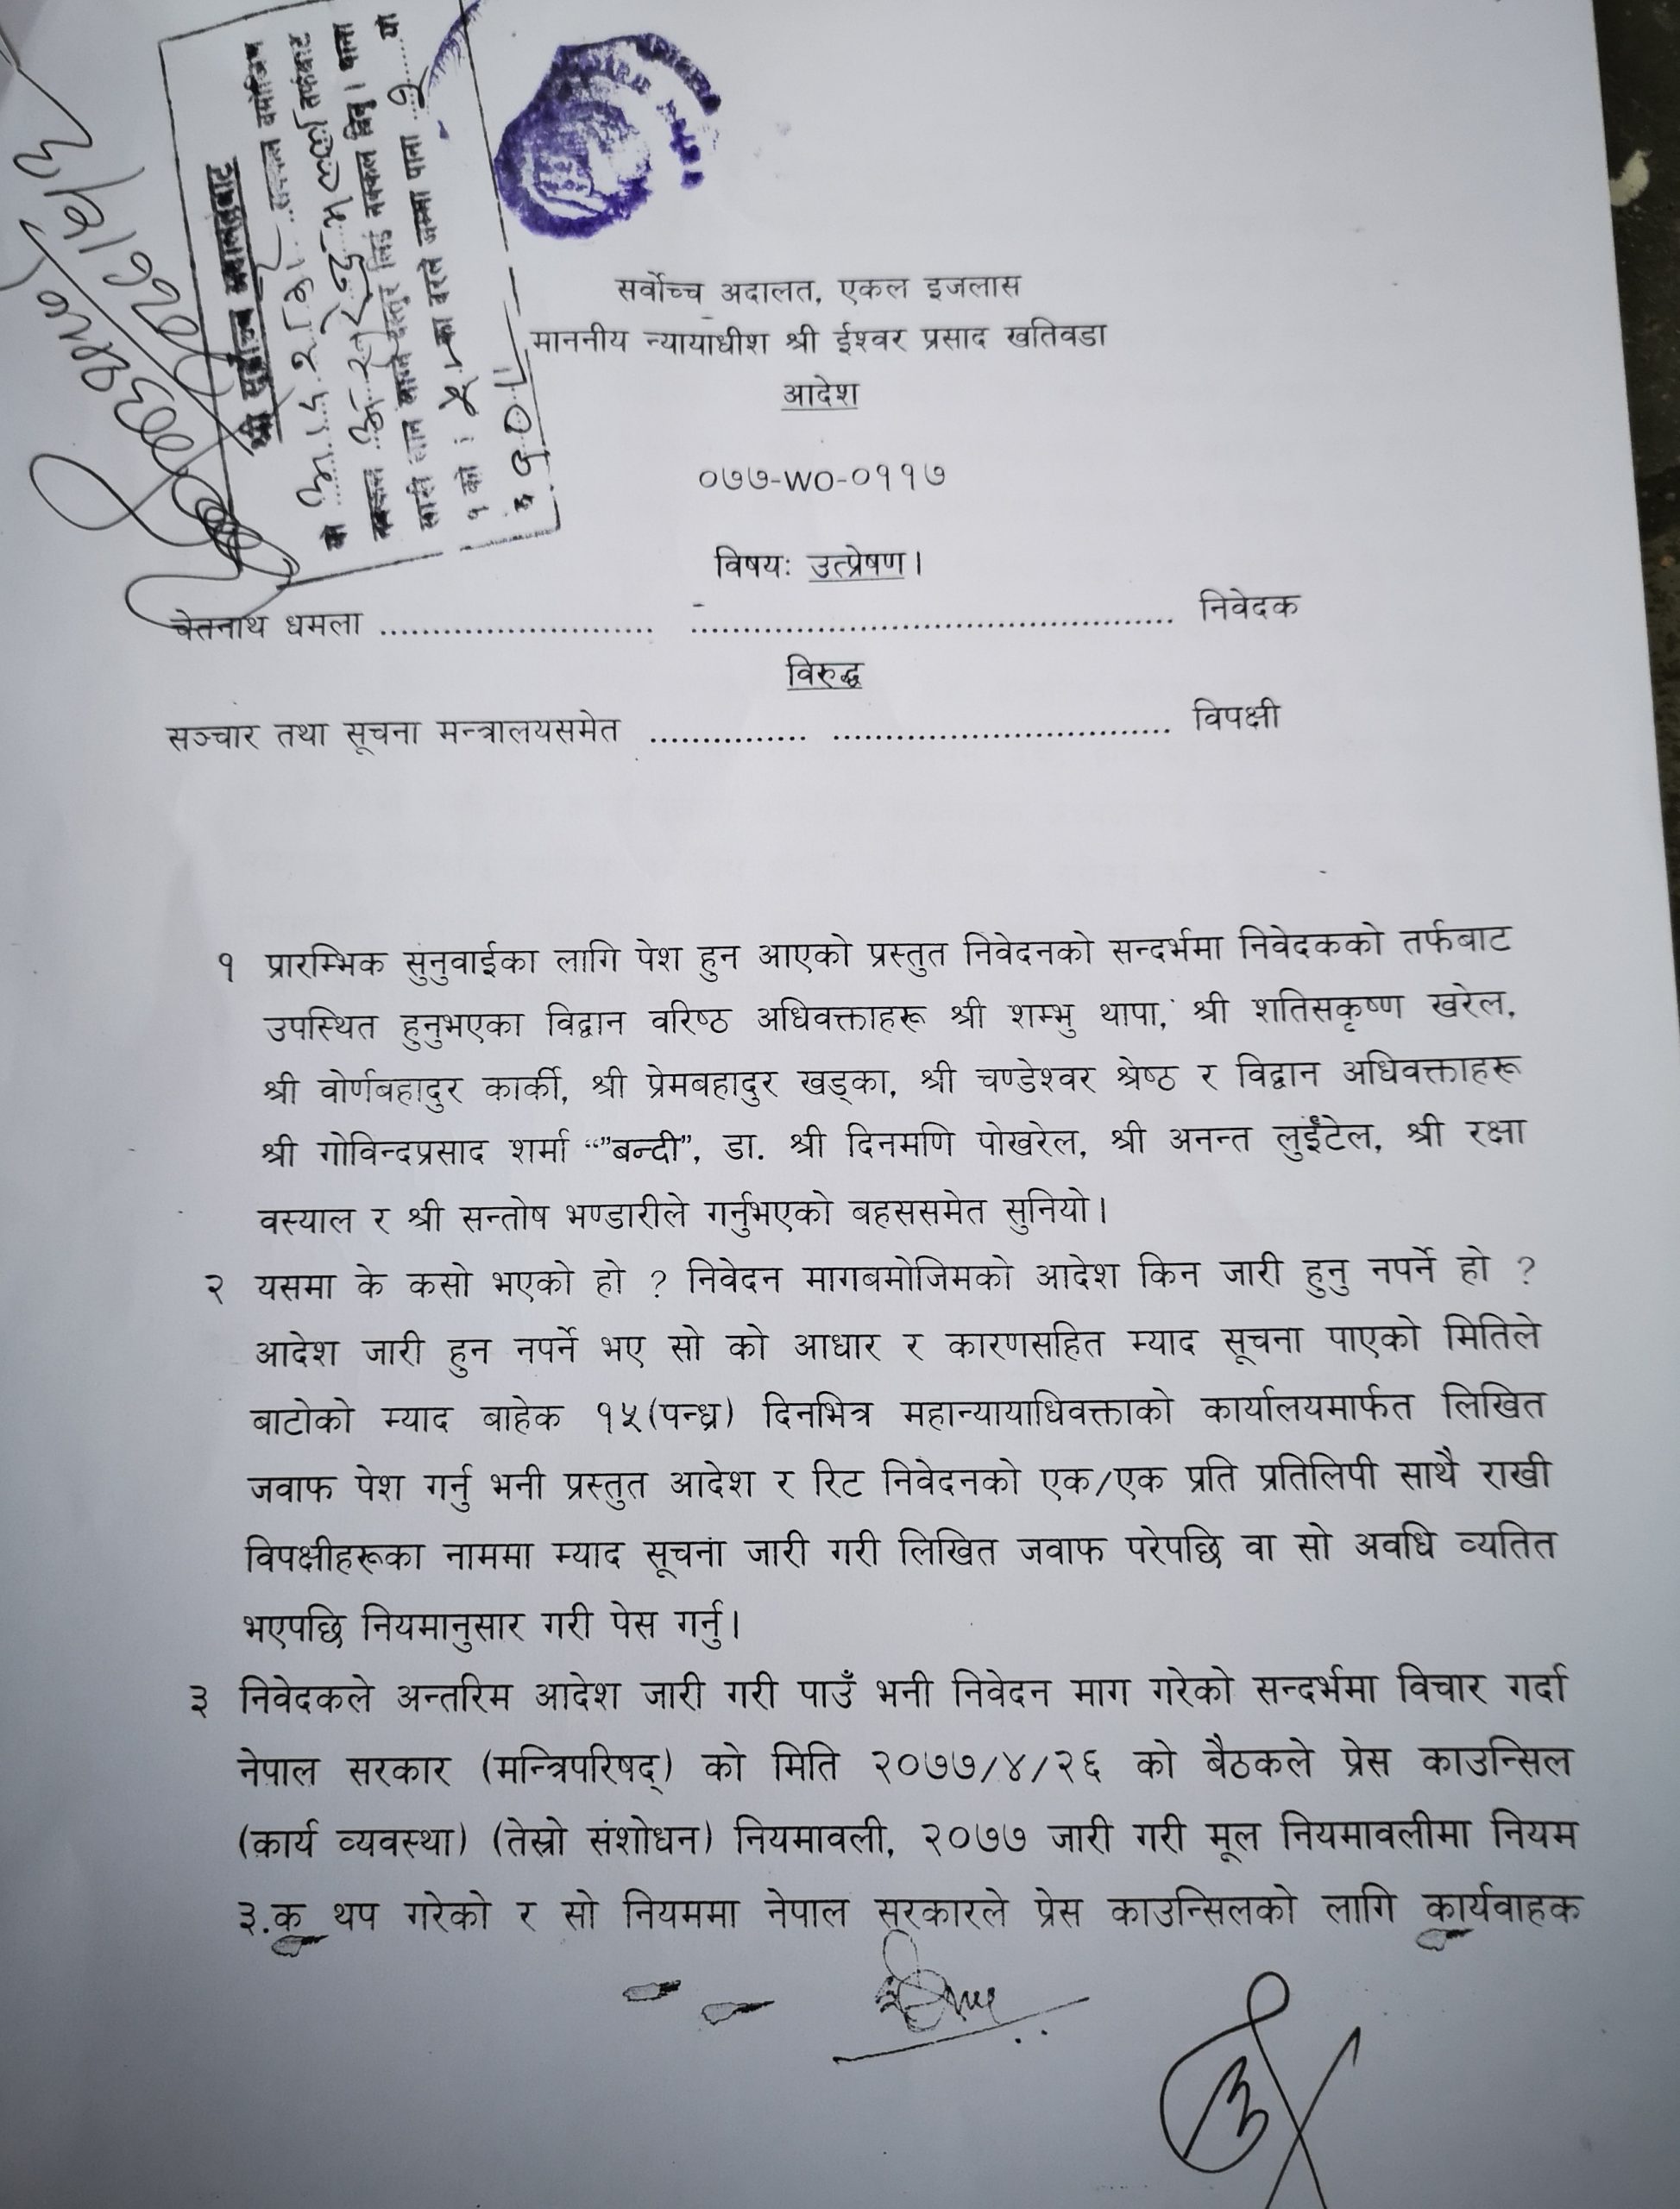 श्री सर्वोच्च अदालतबाट
सक्कल बमोजिम
तर्फबाट
नक्कल दस्तुर लिई नक्कल दिनु । पाना
१ को रु ५।- का दरले जम्मा पाना २ को
रु १०।-
सर्वोच्च अदालत, एकल इजलास
माननीय न्यायाधीश श्री ईश्वर प्रसाद खतिवडा
आदेश
०७७-WO-०११७
विषयः उत्प्रेषण।
चेतनाथ धमला ........................... ............................................... निवेदक
विरुद्ध
सञ्चार तथा सूचना मन्त्रालयसमेत ............... ................................. विपक्षी
१ प्रारम्भिक सुनुवाईका लागि पेश हुन आएको प्रस्तुत निवेदनको सन्दर्भमा निवेदकको तर्फबाट
उपस्थित हुनुभएका विद्वान वरिष्ठ अधिवक्ताहरू श्री शम्भु थापा, श्री शतिसकृष्ण खरेल,
श्री वोर्णबहादुर कार्की, श्री प्रेमबहादुर खड्का, श्री चण्डेश्वर श्रेष्ठ र विद्वान अधिवक्ताहरू
श्री गोविन्दप्रसाद शर्मा “”बन्दी”, डा. श्री दिनमणि पोखरेल, श्री अनन्त लुईंटेल, श्री रक्षा
वस्याल र श्री सन्तोष भण्डारीले गर्नुभएको बहससमेत सुनियो।
२ यसमा के कसो भएको हो ? निवेदन मागबमोजिमको आदेश किन जारी हुनु नपर्ने हो ?
आदेश जारी हुन नपर्ने भए सो को आधार र कारणसहित म्याद सूचना पाएको मितिले
बाटोको म्याद बाहेक १५(पन्ध्र) दिनभित्र महान्यायाधिवक्ताको कार्यालयमार्फत लिखित
जवाफ पेश गर्नु भनी प्रस्तुत आदेश र रिट निवेदनको एक/एक प्रति प्रतिलिपी साथै राखी
विपक्षीहरूका नाममा म्याद सूचना जारी गरी लिखित जवाफ परेपछि वा सो अवधि व्यतित
भएपछि नियमानुसार गरी पेस गर्नु।
३ निवेदकले अन्तरिम आदेश जारी गरी पाउँ भनी निवेदन माग गरेको सन्दर्भमा विचार गर्दा
नेपाल सरकार (मन्त्रिपरिषद्) को मिति २०७७/४/२६ को बैठकले प्रेस काउन्सिल
(कार्य व्यवस्था) (तेस्रो संशोधन) नियमावली, २०७७ जारी गरी मूल नियमावलीमा नियम
३.क थप गरेको र सो नियममा नेपाल सरकारले प्रेस काउन्सिलको लागि कार्यवाहक